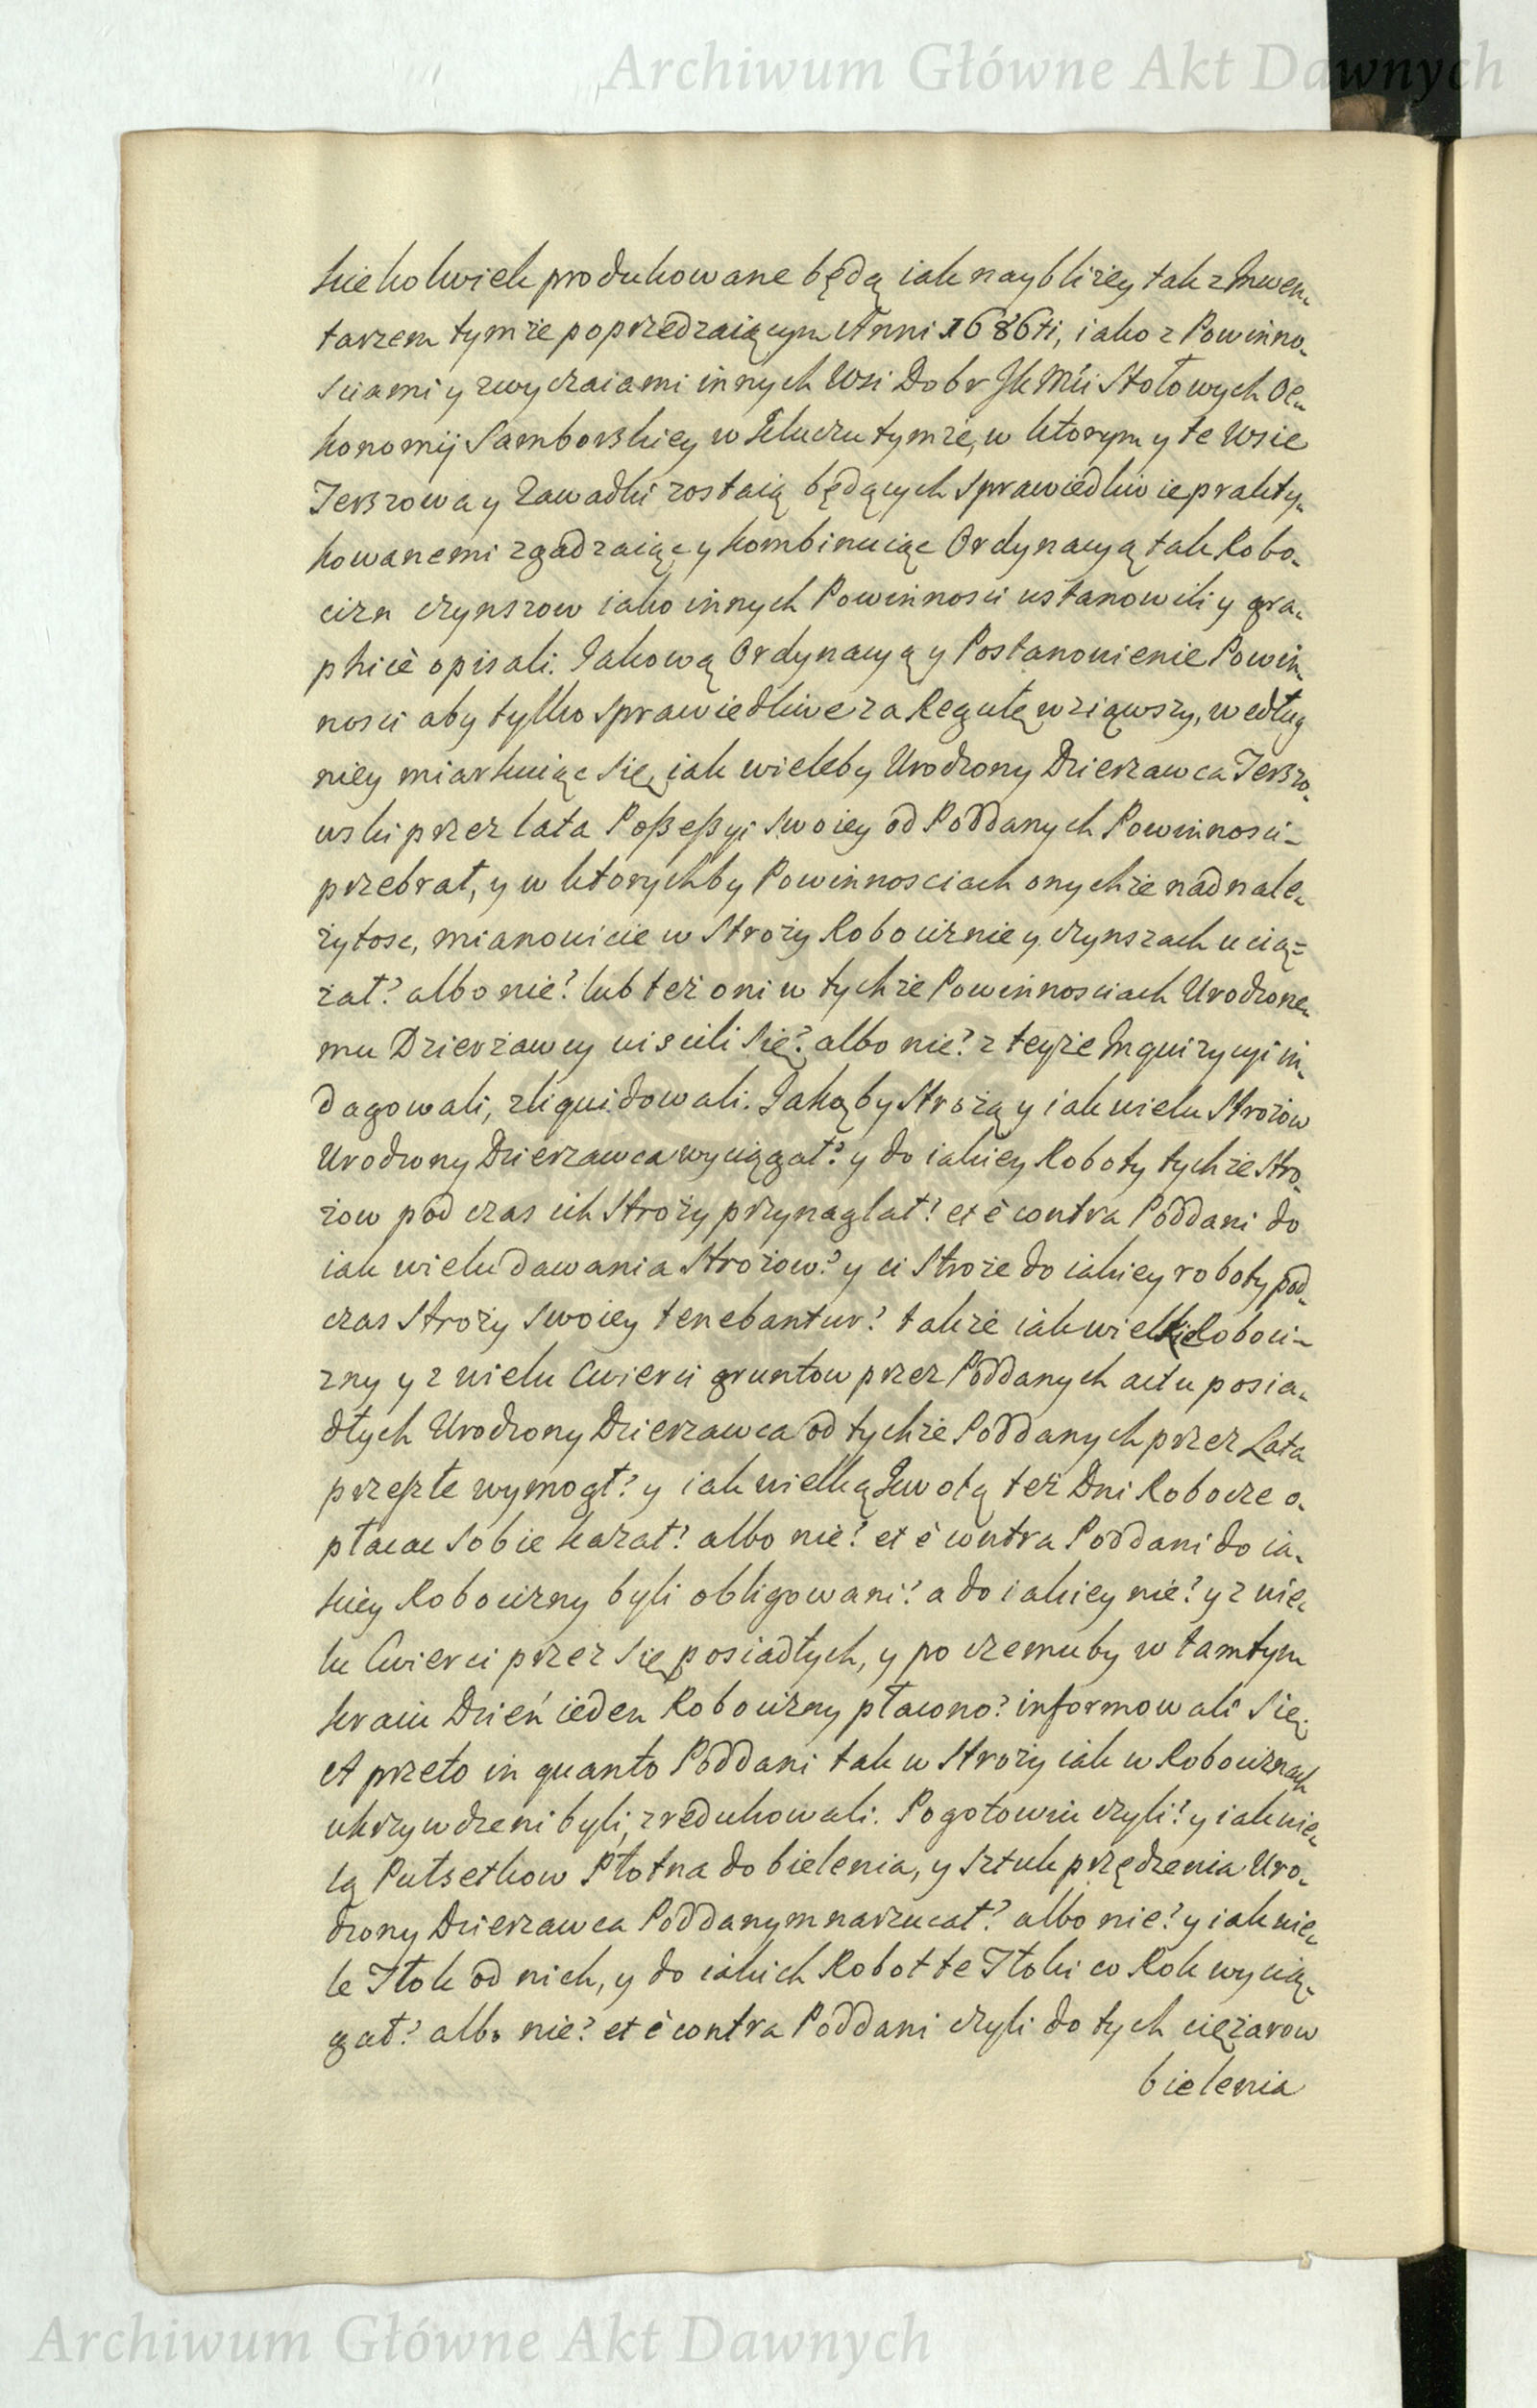 Archiwum Główne Akt Dawnych
kiekolwiek produkowane będą iak naybliżey tak z Inwen-
tarzem tymże poprzedzaiącym Anni 1686ti, iako z Powinno-
sciami y zwyczaiami innych Wsi Dobr JK Mći Stołowych Oe-
konomij Samborskiey w Kluczu tymże, w ktorym y te Wsie
Terszowa y Zawadki zostaią będących sprawiedliwie prakty-
kowanemi zgadzaiąc y kombinuiąc Ordynacyą tak Robo-
cizn czynszow iako innych Powinnosci ustanowili y gra-
phicè opisali. Jakową Ordynacyą y Postanowienie Powin-
nosci aby tylko sprawiedliwe za Regułę wziąwszy, według
niey miarkuiąc się, iak wieleby Urodzony Dzierzawca Terszo-
wski przez lata Possessyi swoiey od Poddanych Powinnosci-
przebrał, y w ktorychby Powinnosciach onychże nad nale-
żytosc, mianowicie w Stroży Robociznie y czynszach ucią=
żał? albo nie? lub też oni w tychże Powinnosciach Urodzone-
mu Dzierżawcy uiscili się? albo nie? z teyże Inquizycyi in-
dagowali, zliquidowali. Jakąby Strożą y iak wielu Strożow
Urodzony Dzierzawca wyciągał? y do iakiey Roboty tychże Stro-
żow podczas ich Stroży przynaglał? et è contra Poddani do
iak wielu dawania Strożow? y ci Stroże do iakiey roboty pod-
czas Stroży swoiey tenebantur? także iak wielkie Roboci-
zny y z wielu Cwierci gruntow przez Poddanych actu posia-
dłych Urodzony Dzierzawca od tychże Poddanych przez Lata
przeszłe wymogł? y iak wielką Kwotą też Dni Robocze o-
płacac sobie kazał? albo nie? et è contra Poddani do ia-
kiey Robocizny byli obligowani? a do iakiey nie? y z wie-
lu Cwierci przez się posiadłych, y po czemuby w tamtym
kraiu Dzień ieden Robocizny płacono? informowali się.
A przeto in quanto Poddani tak w Stroży iak w Robociznach
ukrzywdzeni byli, zredukowali. Pogotowiu czyli? y iak wie-
lą Pułsetkow Płotna do bielenia, y sztuk przędzenia Uro-
dzony Dzierzawca Poddanym narzucał? albo nie? y iak wie-
le Tłok od nich, y do iakich Robot te Tłoki co Rok wycią-
gał? albo nie? et è contra Poddani czyli do tych ciężarow
bielenia
Archiwum Główne Akt Dawnych